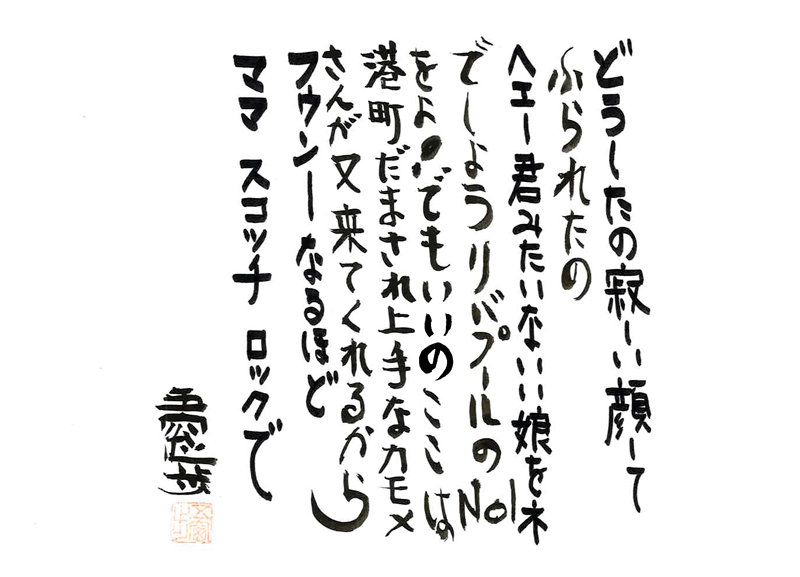 どうしたの寂しい顔して
ふられたの
ヘエー君みたいないい娘をネ
でしょうリバプールのNo1
をよ でもいいの ここは
港町だまされ上手なカモメ
さんが又来てくれるから
フウンーなるほど
ママ スコッチ ロックで